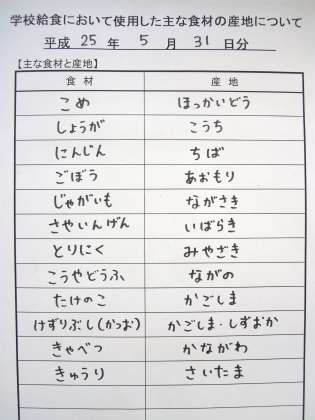 学校給食において使用した主な食材の産地について
平成 25 年 5 月 31 日分
【主な食材と産地】
食材 産地
こめ ほっかいどう
しょうが こうち
にんじん ちば
ごぼう あおもり
じゃがいも ながさき
さやいんげん いばらき
とりにく みやざき
こうやどうふ ながの
たけのこ かごしま
けずりぶし(かつお) かごしま・しずおか
きゃべつ かながわ
きゅうり さいたま